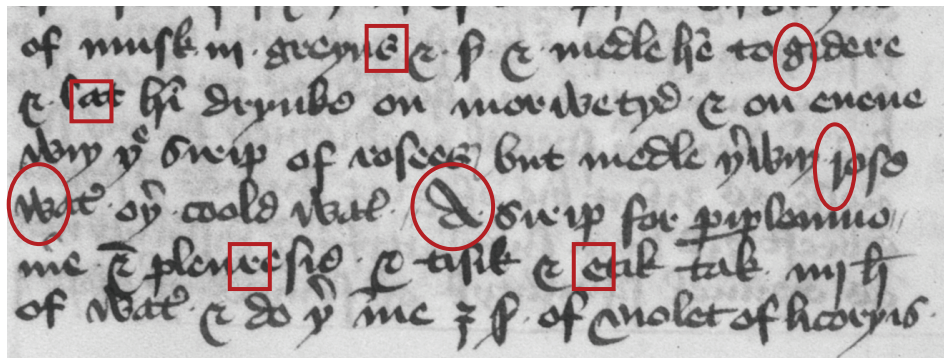 of musk iii · greynes ⁊ · ß · ⁊ · medle hē togidere
⁊ · lat hī drynke on morwetyd · ⁊ on euene
wiþ yͤ sirip of roses but medle þ̓wiþ rose
wat̓ · oþ̓ · coold wat̓ · A sirip for piplemnio
me ⁊ pleuresie · ⁊ tisik ⁊ etik tak · iiij ħ
of wat̓ · ⁊ do þ̓ īne ʒ ß · of violet of licoryis ·